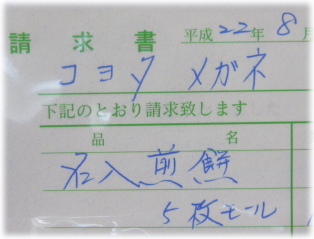 請求書 平成22年8月
コヨダ メガネ
下記のとおり請求致します
品 名
名入煎餅
5枚モール